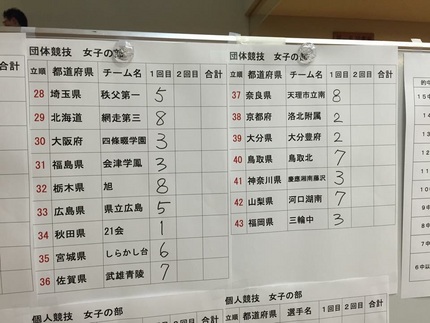 合計
団体競技 女子の部
立順 都道府県 チーム名 1回目 2回目 合計
28 埼玉県 秩父第一 5
29 北海道 網走第三 8
30 大阪府 四條畷学園 3
31 福島県 会津学鳳 3
32 栃木県 旭 8
33 広島県 県立広島 5
34 秋田県 21会 1
35 宮城県 しらかし台 6
36 佐賀県 武雄青陵 7
団体競技 女子の部
立順 都道府県 チーム名 1回目 2回目 合計
37 奈良県 天理市立南 8
38 京都府 洛北附属 2
39 大分県 大分豊府 2
40 鳥取県 鳥取北 7
41 神奈川県 慶應湘南藤沢 3
42 山梨県 河口湖南 7
43 福岡県 三輪中 3
個人競技 女子の部
合計
個人競技 女子の部
立順 都道府県 選手名 1回目 2回目 合計
的中
15中